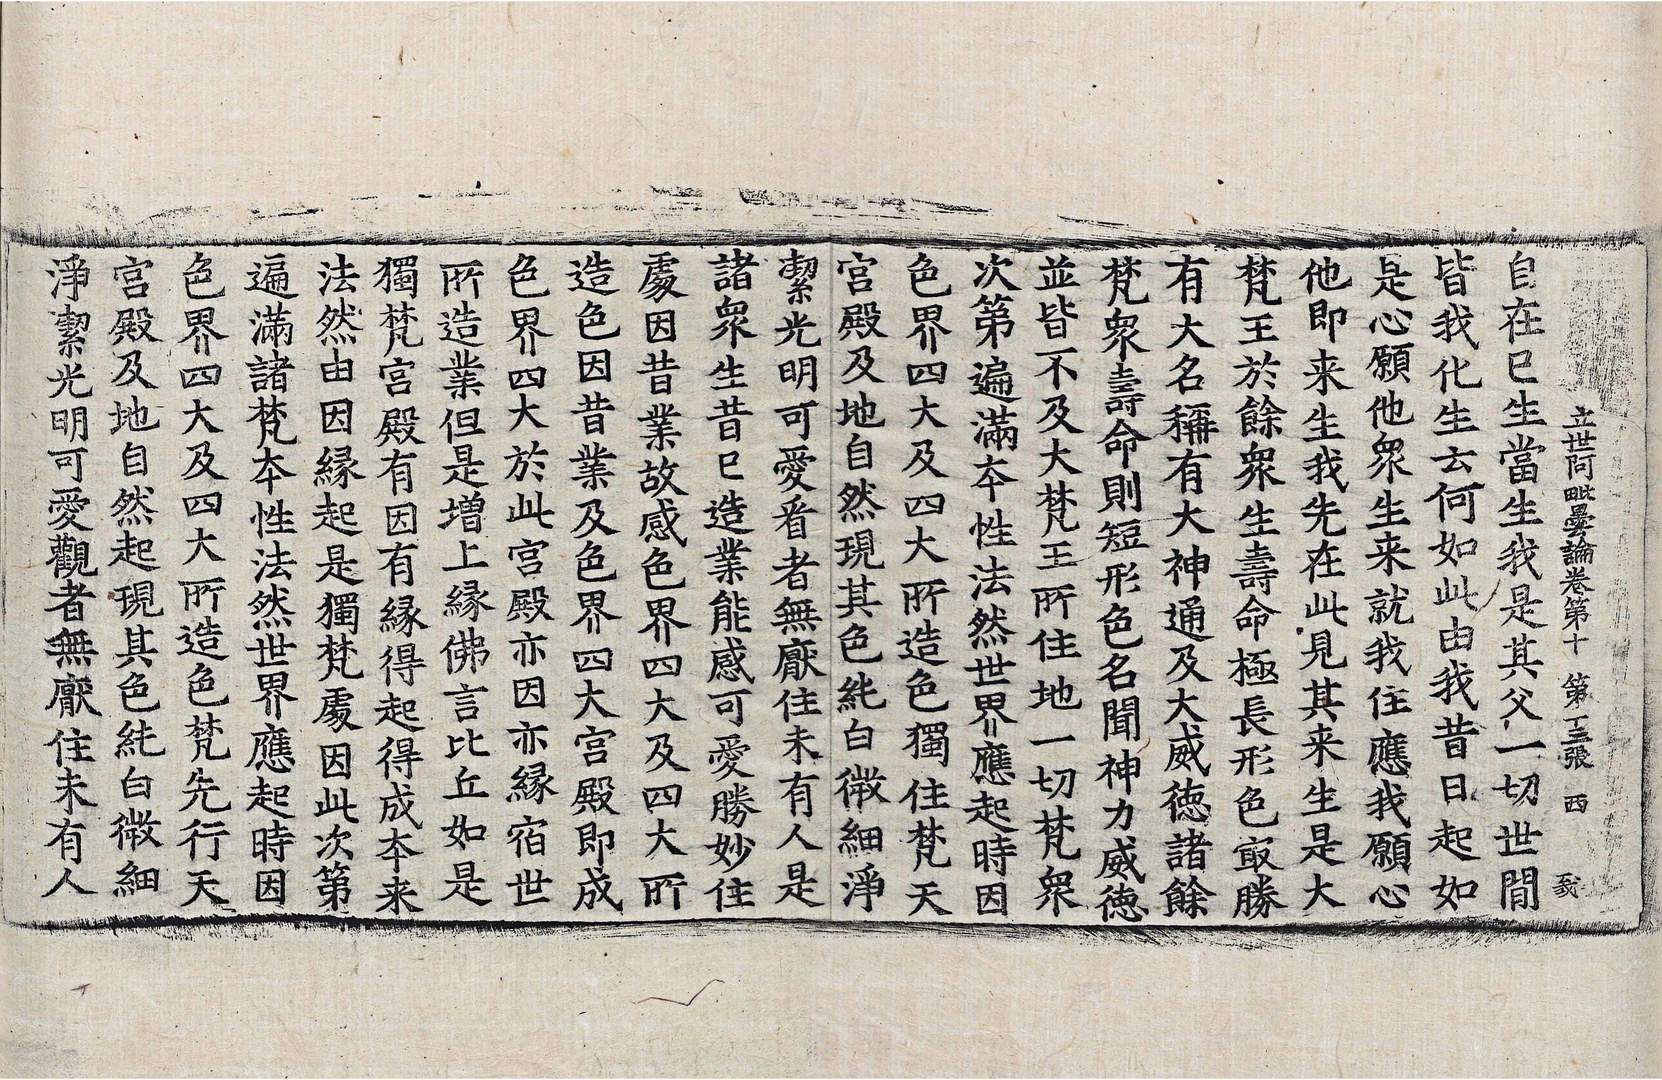 立世阿毗曇論卷第十 第十三張 西
自在已生當生我是其父一切世間
皆我化生云何如此由我昔日起如
是心願他衆生来就我住應我願心
他即来生我先在此見其来生是大
梵王於餘衆生壽命極長形色㝡勝
有大名稱有大神通及大威德諸餘
梵衆壽命則短形色名聞神力威德
並皆不及大梵王所住地一切梵衆
次第遍滿夲性法然世界應起時因
色界四大及四大所造色獨住梵天
宮殿及地自然現其色純白微細淨
潔光明可愛看者無厭住未有人是
諸衆生昔已造業能感可愛勝妙住
處因昔業故感色界四大及四大所
造色因昔業及色界四大宮殿即成
色界四大於此宮殿亦因亦緣宿世
所造業但是增上緣佛言比丘如是
獨梵宮殿有因有緣得起得成夲来
法然由因緣起是獨梵處因此次第
遍滿諸梵夲性法然世界應起時因
色界四大及四大所造色梵先行天
宮殿及地自然起現其色純白微細
淨潔光明可愛觀者無厭住未有人